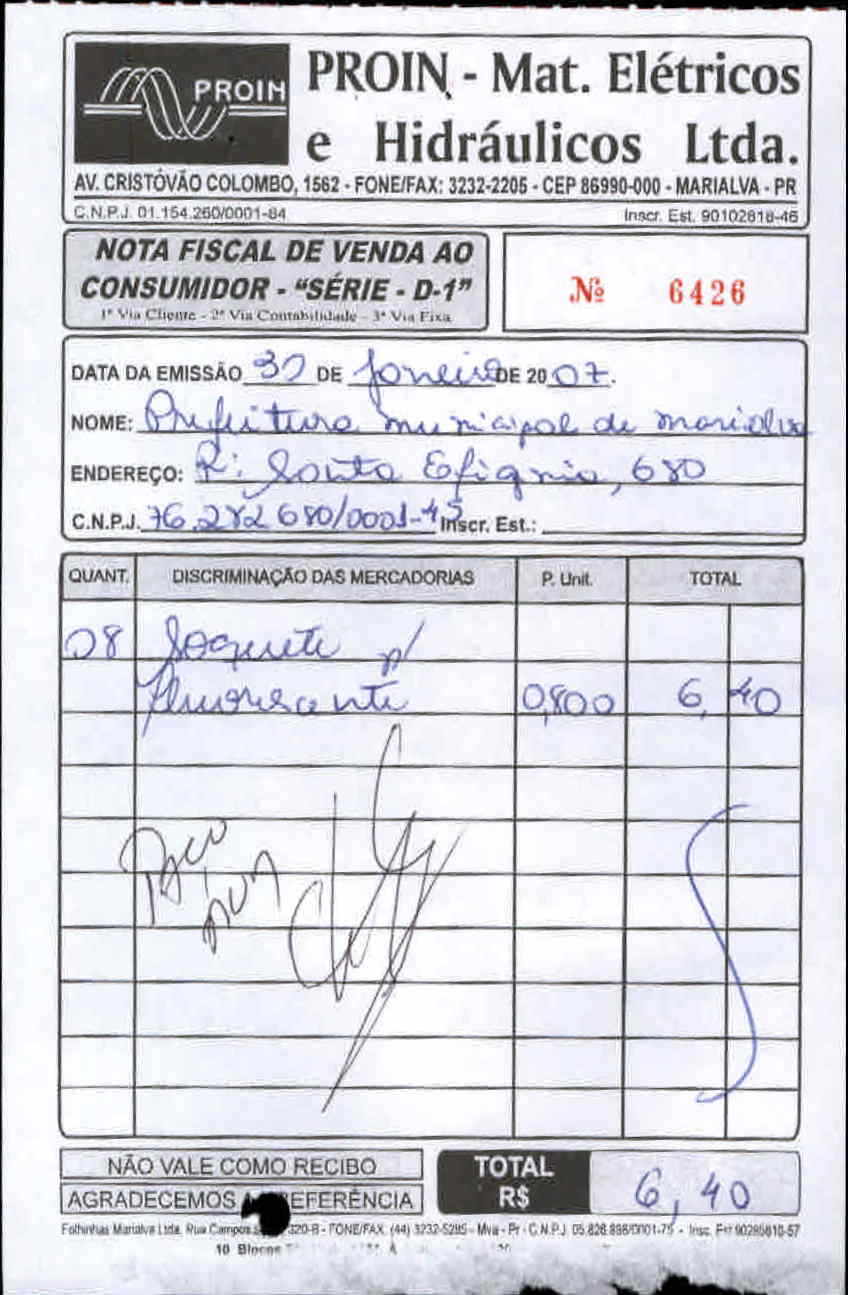 PROIN
PROIN - Mat. Elétricos
e Hidráulicos Ltda.
AV. CRISTÓVÃO COLOMBO, 1562 - FONE/FAX: 3232-2205 - CEP 86990-000 - MARIALVA - PR
C.N.P.J. 01.154.260/0001-84 Inscr. Est. 90102818-46
NOTA FISCAL DE VENDA AO
CONSUMIDOR - "SÉRIE - D-1"
1ª Via Cliente - 2ª Via Contabilidade - 3ª Via Fixa
Nº 6426
DATA DA EMISSÃO DE Janeiro DE 2007.
NOME: Prefeitura municipal de marialva
ENDEREÇO: R: Santa Efignia, 680
C.N.P.J. 76.282680/0001-45 Inscr. Est.:
QUANT. DISCRIMINAÇÃO DAS MERCADORIAS P. Unit. TOTAL
08 Soquete p/
fluorescente 0,800 6,40
NÃO VALE COMO RECIBO
AGRADECEMOS A PREFERÊNCIA
TOTAL
R$ 6,40
Folhinhas Marialva Ltda. Rua Campos 320-B - FONE/FAX: (44) 3232-5285 - Mva - Pr - C.N.P.J. 05.826.896/0001-75 - Insc. Est 90285810-57
10 Blocos